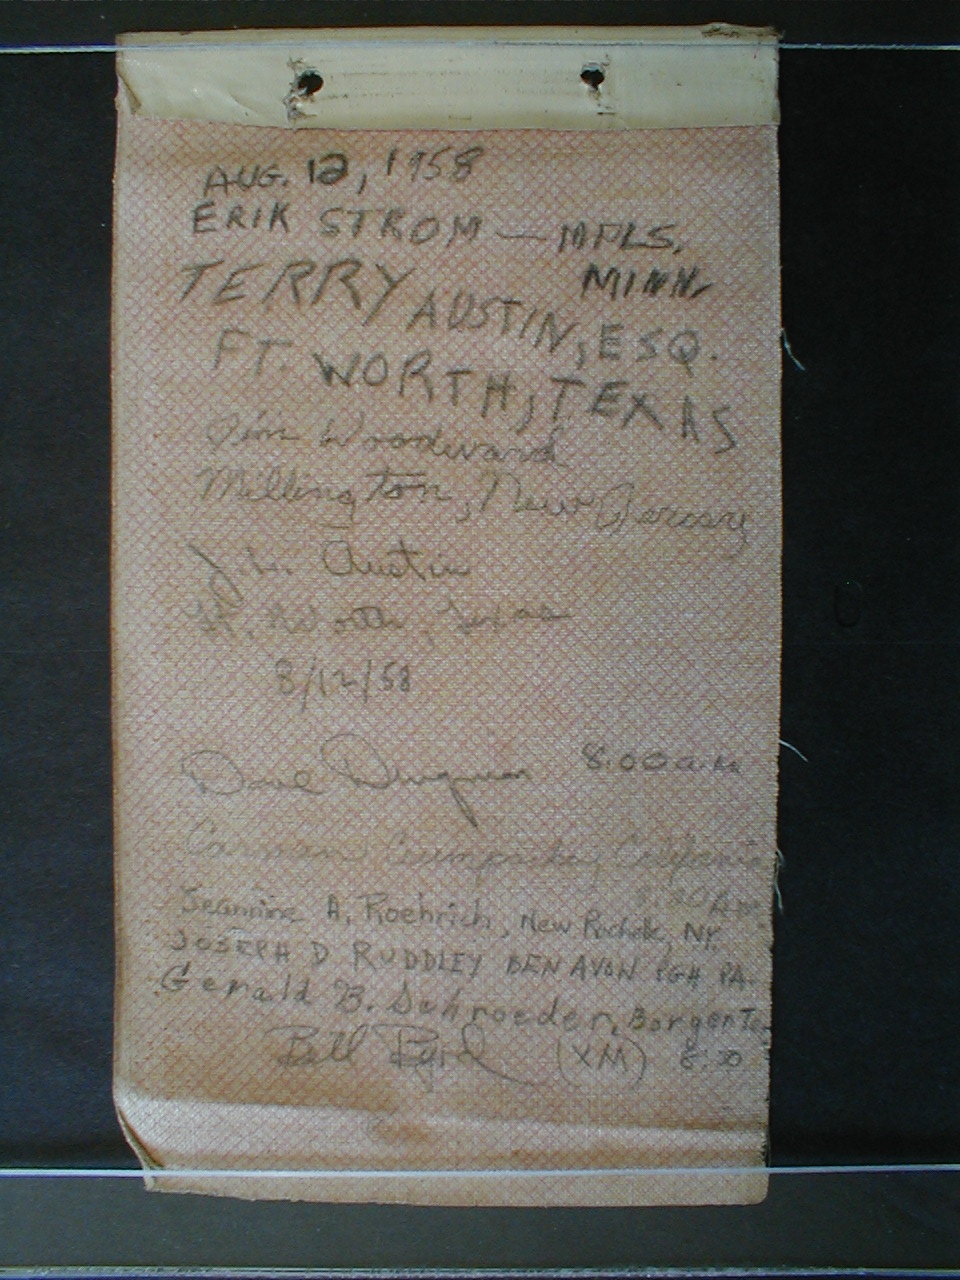 AUG. 12, 1958
ERIK STROM — MPLS.
MINN.
TERRY AUSTIN, ESQ.
FT. WORTH, TEXAS
Jim Woodward
Millington, New Jersey
J. L. Austin
Ft. Worth, Texas
8/12/58
8:00 a.m.
Carmen California
Jeannine A. Roehrich, New Rochelle, NY.
JOSEPH D RUDDLEY BEN AVON PGH PA.
Gerald B. Schroeder, Borgen
Bill Byrd (XM)